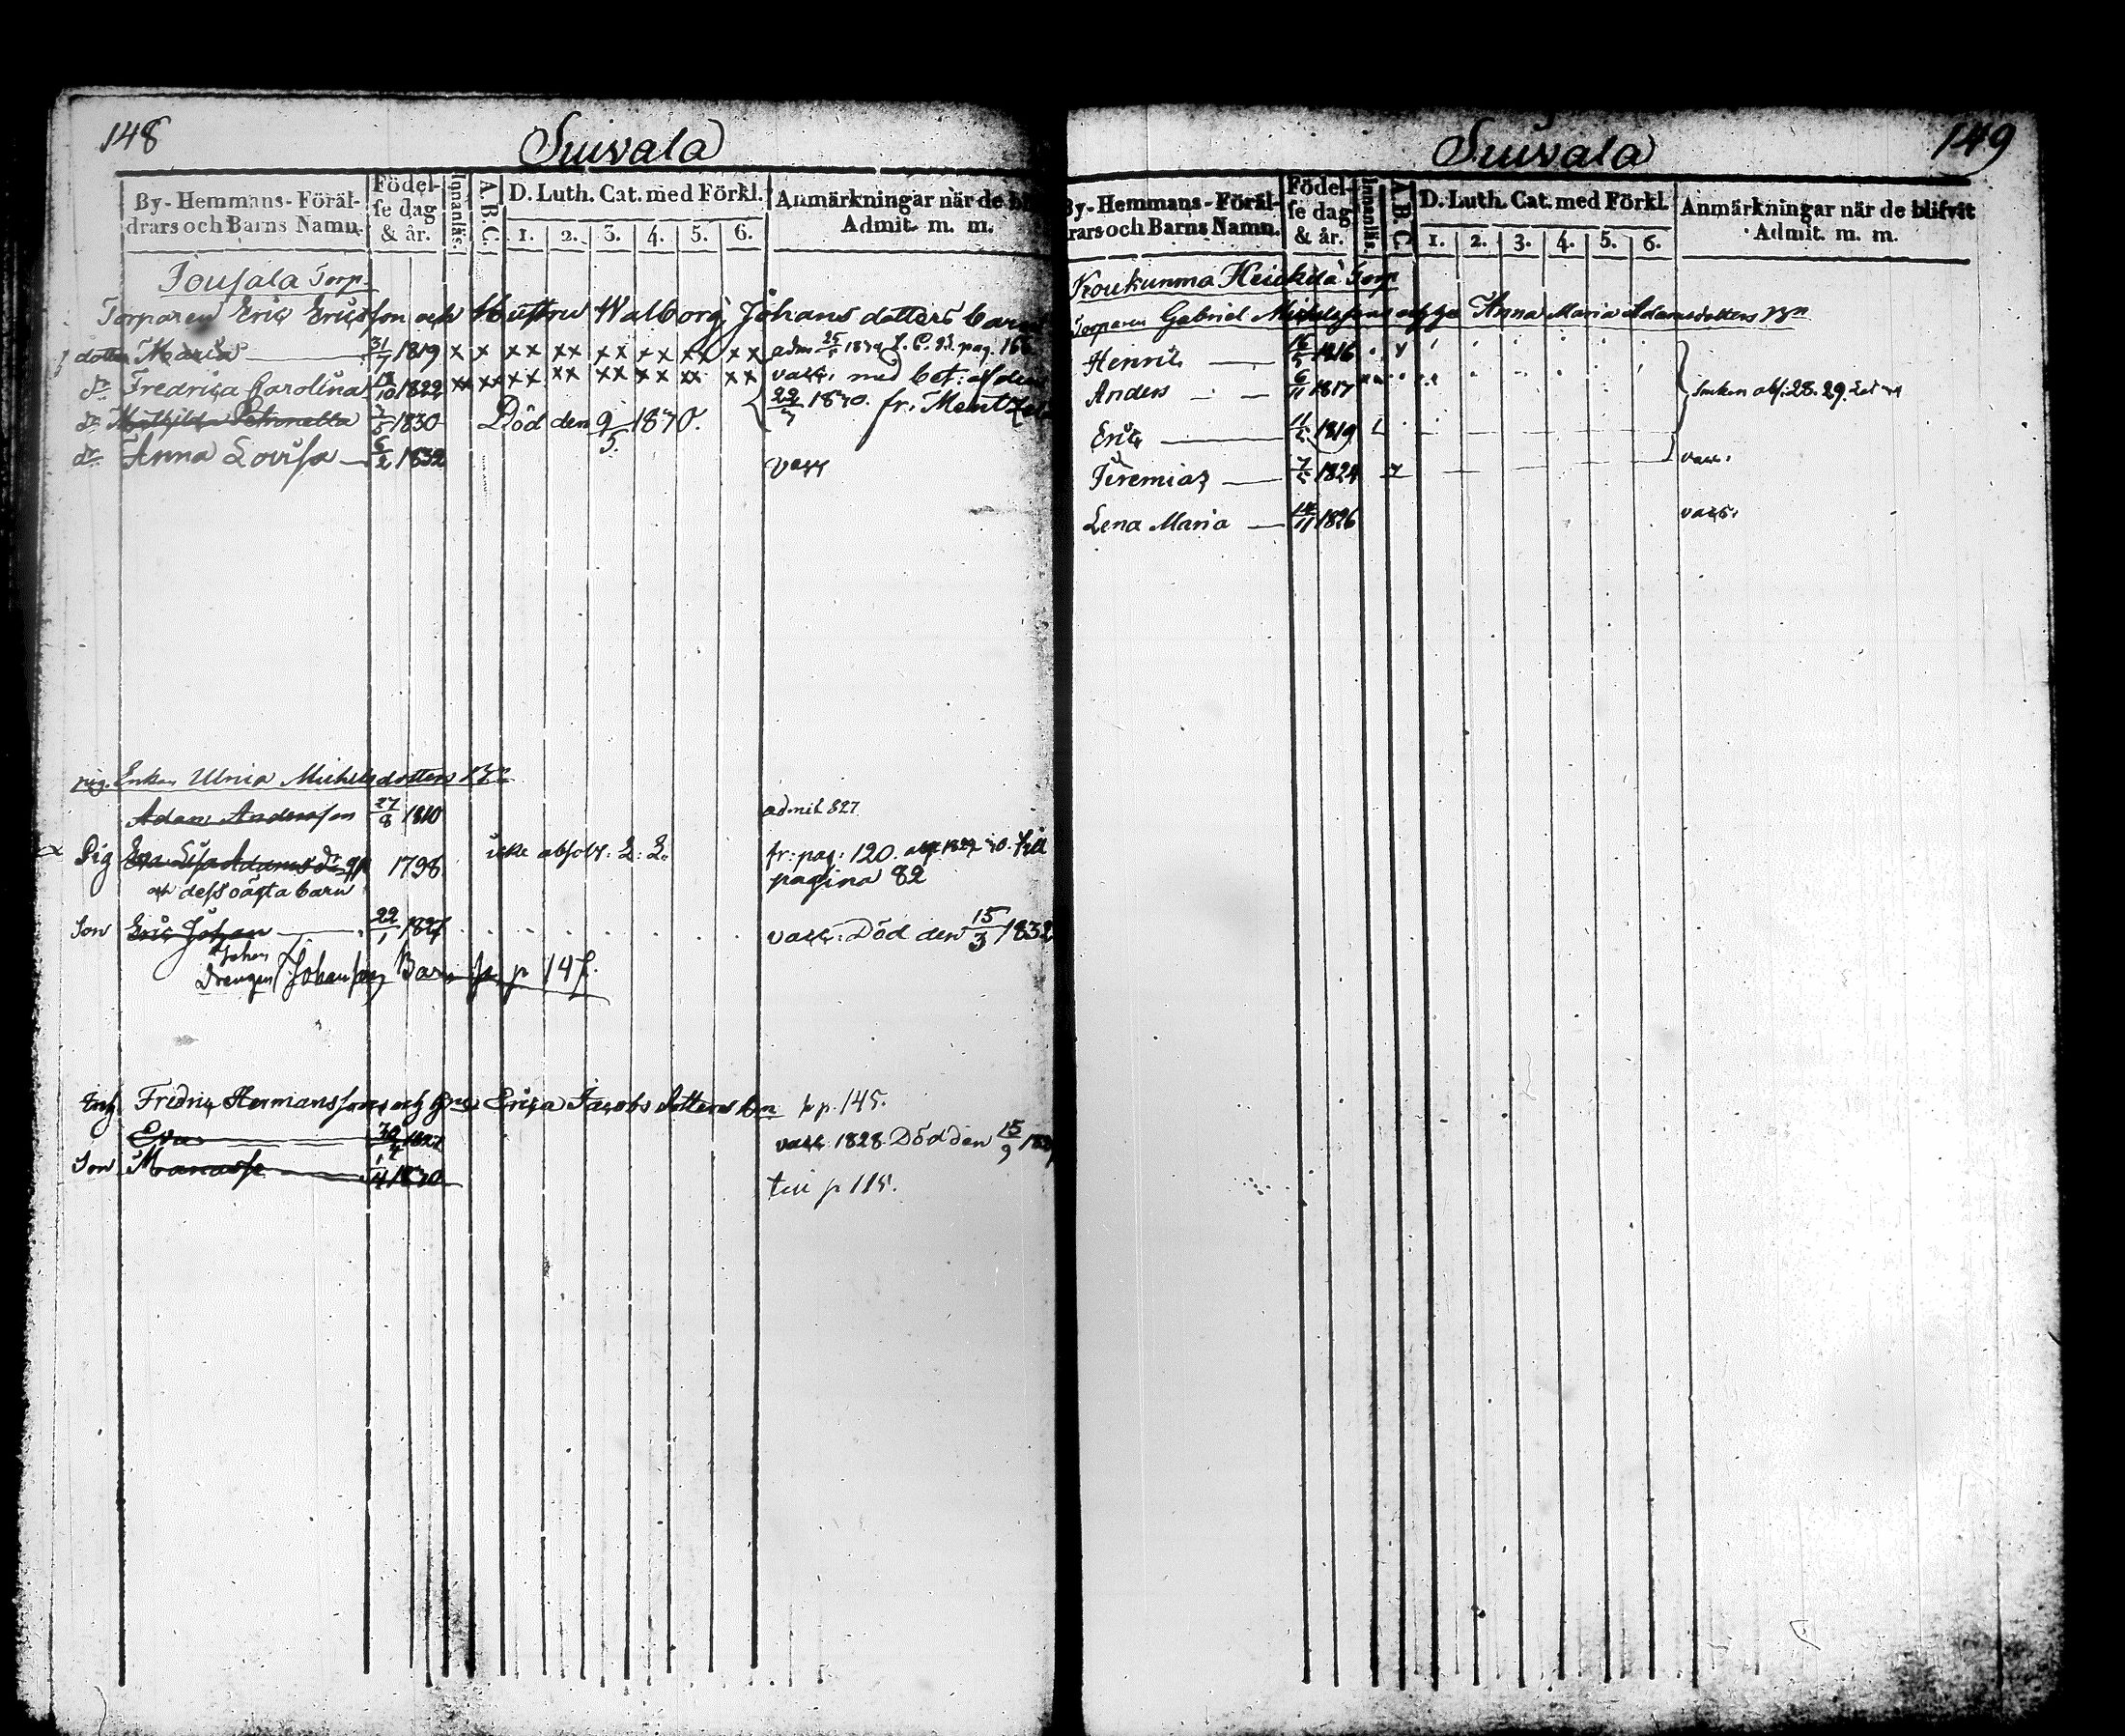 148
Suivala
By-Hemmans-Föräl-
drars och Barns Namn.
Födel-
se dag
& år.
Innanläs.
A.B.C.
D. Luth. Cat. med Förkl.
1. 2. 3. 4. 5. 6.
Anmärkningar när de
Admit. m. m.
Jousala Torp
Torparen Eric Ericsson och Hustru Walborg Johans dotters barn
dotter Maria 31/7 1819 x x xx xx xx xx xx xx
dr Fredrica Carolina 10 1822 xx xx xx xx xx xx xx xx vacc. med bet: af den
22/7 1830. fr.
dr Mathilda Petronella 1830 Död den 9/5 1830.
dr Anna Lovisa 6/2 1832 vacc
Enkan Ulrica Michelsdotters Bn
Adam Andersson 27/8 1810 admit 827
Pig Eva Lisa Adamsdr 1798 icke absolv: fr: pag: 120. till
pagina 82
och dess oägta barn
Son Eric Johan 22/1 1827 vacc: Död den 15/3 1832
Johan
Drengen Johansson Barn p 147.
Inh Fredric Hermanssons och Erica Jacobs dotters bn p. 145.
Eva 30/4 1827 vacc. 1828. Död den 15/9
Son Manasse 1/4 1830 till p 115.
149
Suivala
By-Hemmans-Föräl-
drars och Barns Namn.
Födel-
se dag
& år.
Innanläs.
A.B.C
D. Luth. Cat. med Förkl.
1. 2. 3. 4. 5. 6.
Anmärkningar när de blifvit
Admit. m. m.
Koukunma Heickilä Torp
Torparen Gabriel Michelssons och Anna Maria Adamsdotters Bn
Henric 16/5 1816
Anders 6/11 1817
28. 29.
Eric 1819
Jeremias 7/5 1824 vacc.
Lena Maria 11 1826 vacc.